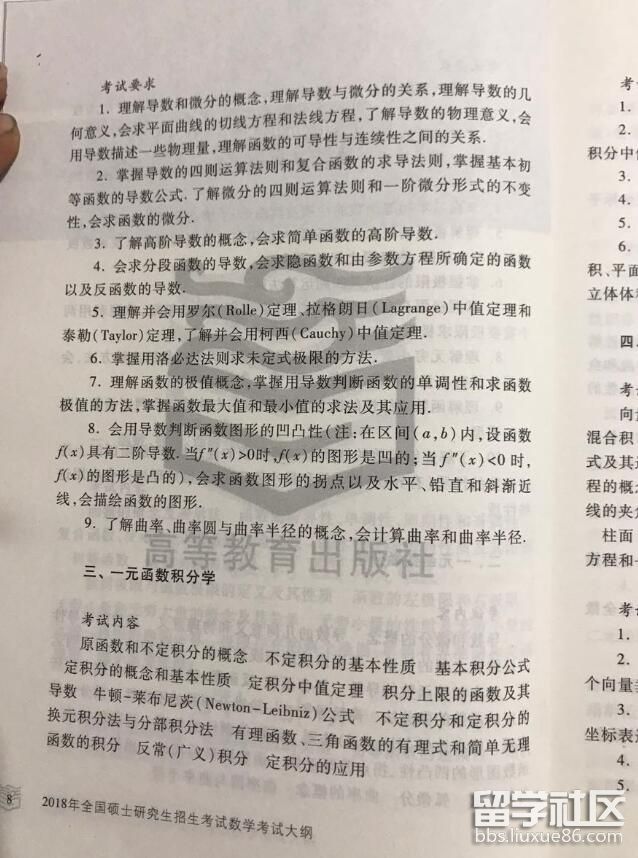 考试要求
1. 理解导数和微分的概念,理解导数与微分的关系,理解导数的几
何意义,会求平面曲线的切线方程和法线方程,了解导数的物理意义,会
用导数描述一些物理量,理解函数的可导性与连续性之间的关系.
2. 掌握导数的四则运算法则和复合函数的求导法则,掌握基本初
等函数的导数公式.了解微分的四则运算法则和一阶微分形式的不变
性,会求函数的微分.
3. 了解高阶导数的概念,会求简单函数的高阶导数.
4. 会求分段函数的导数,会求隐函数和由参数方程所确定的函数
以及反函数的导数.
5. 理解并会用罗尔(Rolle)定理、拉格朗日(Lagrange)中值定理和
泰勒(Taylor)定理,了解并会用柯西(Cauchy)中值定理.
6. 掌握用洛必达法则求未定式极限的方法.
7. 理解函数的极值概念,掌握用导数判断函数的单调性和求函数
极值的方法,掌握函数最大值和最小值的求法及其应用.
8. 会用导数判断函数图形的凹凸性(注:在区间(a,b)内,设函数
f(x)具有二阶导数.当f″(x)>0时,f(x)的图形是凹的;当f″(x)<0时,
f(x)的图形是凸的),会求函数图形的拐点以及水平、铅直和斜渐近
线,会描绘函数的图形.
9. 了解曲率、曲率圆与曲率半径的概念,会计算曲率和曲率半径.
高等教育出版社
三、一元函数积分学
考试内容
原函数和不定积分的概念 不定积分的基本性质 基本积分公式
定积分的概念和基本性质 定积分中值定理 积分上限的函数及其
导数 牛顿-莱布尼茨(Newton-Leibniz)公式 不定积分和定积分的
换元积分法与分部积分法 有理函数、三角函数的有理式和简单无理
函数的积分 反常(广义)积分 定积分的应用
8 2018年全国硕士研究生招生考试数学考试大纲
考
1.
积分中
3.
4.
5.
6.
积、平面
立体体
四、
考
向量
混合积
式及其
程的概
线的夹
柱面
方程和一
考
1.
2.
个向量
3.
坐标表
4.
5.
留学社区
bbs.liuxue86.com